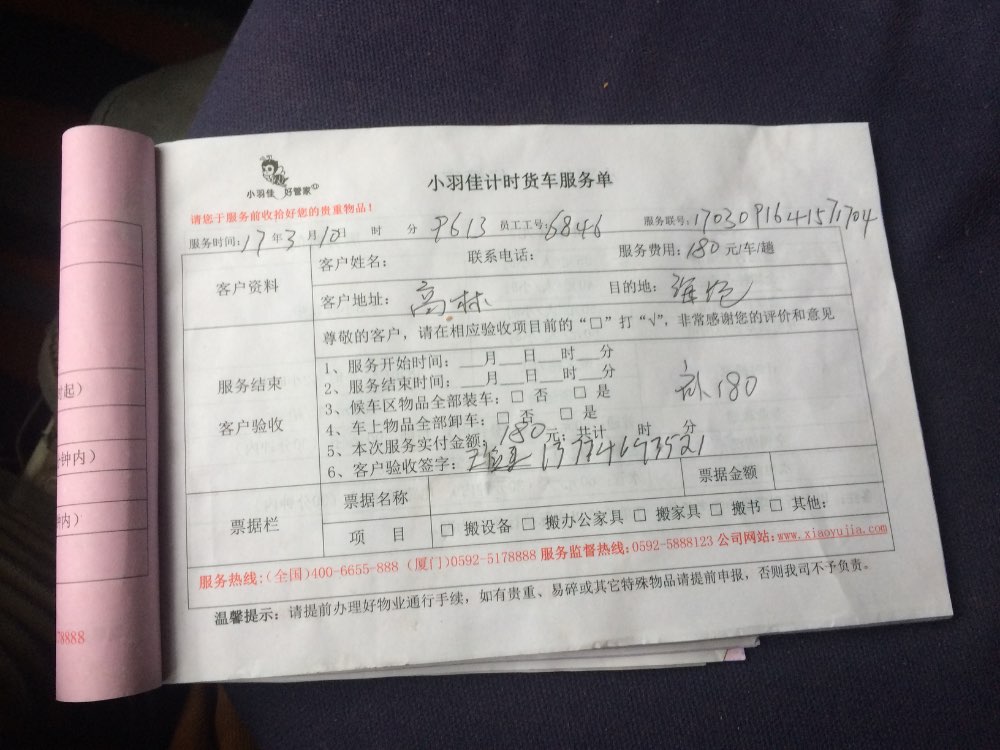 小羽佳 好管家
小羽佳计时货车服务单
请您于服务前收拾好您的贵重物品！
服务时间：17年3月10日 时 分 9613 员工工号：6846 服务联号：1703091641571704
客户资料
客户姓名： 联系电话： 服务费用：180元/车/趟
客户地址：高林 目的地：
服务结束
客户验收
尊敬的客户，请在相应验收项目前的“□”打“√”，非常感谢您的评价和意见
1、服务开始时间：___月___日___时___分
2、服务结束时间：___月___日___时___分
3、候车区物品全部装车：□ 否 □ 是
4、车上物品全部卸车：□ 否 □ 是
5、本次服务实付金额：180元；共计 时 分
6、客户验收签字：
180
票据栏
票据名称 票据金额
项 目 □ 搬设备 □ 搬办公家具 □ 搬家具 □ 搬书 □ 其他：
服务热线：(全国)400-6655-888 (厦门)0592-5178888 服务监督热线：0592-5888123 公司网站：www.xiaoyujia.com
温馨提示：请提前办理好物业通行手续，如有贵重、易碎或其它特殊物品请提前申报，否则我司不予负责。
时起)
分钟内)
钟内)
78888